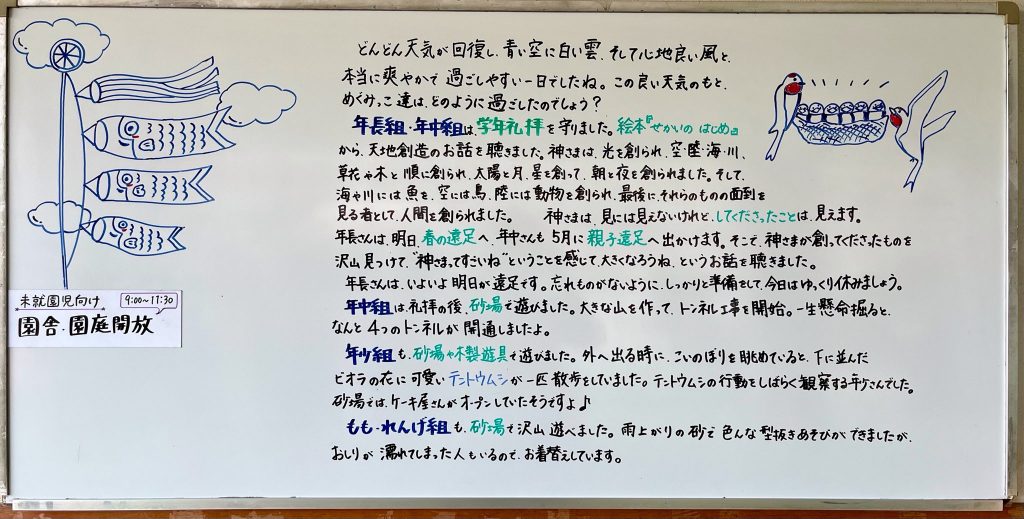 どんどん天気が回復し、青い空に白い雲、そして心地良い風と、
本当に爽やかで過ごしやすい一日でしたね。この良い天気のもと、
めぐみっこ達は、どのように過ごしたのでしょう？
年長組・年中組は、学年礼拝を守りました。絵本『せかいのはじめ』
から、天地創造のお話を聴きました。神さまは、光を創られ、空・陸・海・川、
草花や木と順に創られ、太陽と月、星を創って、朝と夜を創られました。そして、
海や川には魚を、空には鳥、陸には動物を創られ、最後に、それらのものの面倒を
見る者として、人間を創られました。　神さまは、見には見えないけれど、してくださったことは、見えます。
年長さんは、明日、春の遠足へ、年中さんも5月に親子遠足へ出かけます。そこで、神さまが創ってくださったものを
沢山見つけて、“神さまってすごいね”ということを感じて、大きくなろうね、というお話を聴きました。
年長さんは、いよいよ明日が遠足です。忘れものがないように、しっかりと準備をして、今日はゆっくり休みましょう。
年中組は、礼拝の後、砂場で遊びました。大きな山を作って、トンネル工事を開始。一生懸命掘ると、
なんと4つのトンネルが開通しましたよ。
年少組も、砂場や木製遊具で遊びました。外へ出る時に、こいのぼりを眺めていると、下に並んだ
ビオラの花に可愛いテントウムシが一匹散歩をしていました。テントウムシの行動をしばらく観察する年少さんでした。
砂場では、ケーキ屋さんがオープンしていたそうですよ♪
もも・れんげ組も、砂場で沢山遊べました。雨上がりの砂で色んな型抜きあそびができましたが、
おしりが濡れてしまった人もいるので、お着替えしています。
未就園児向け 9:00~11:30
園舎・園庭開放